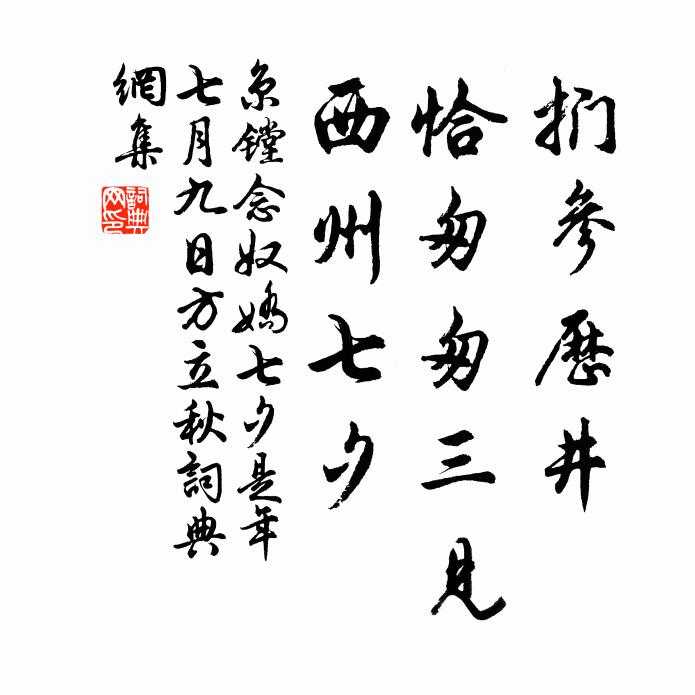 捫參歷井
恰匆匆三見
西州七夕
京鏜念奴嬌七夕是年
七月九日方立秋詞典
網集
詞典
网印